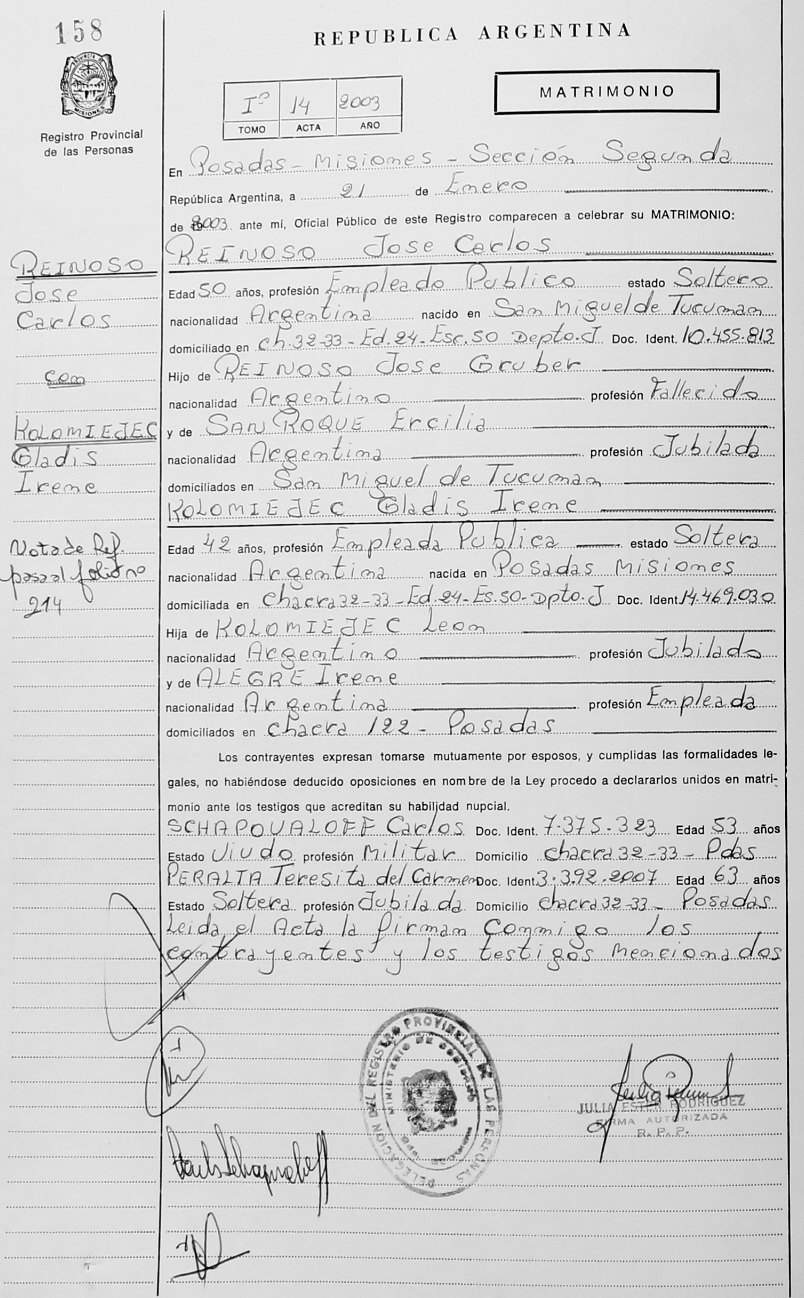 158
REPUBLICA ARGENTINA
PROVINCIA DE MISIONES
Registro Provincial
de las Personas
Iº 14 2003
TOMO ACTA AÑO
MATRIMONIO
En Posadas - Misiones - Sección Segunda
República Argentina, a 21 de Enero
de 2003 ante mí, Oficial Público de este Registro comparecen a celebrar su MATRIMONIO:
REINOSO Jose Carlos
REINOSO
Jose
Carlos
con
KOLOMIEJEC
Gladis
Irene
Nota de Ref.
pasa al folio no
214
Edad 50 años, profesión Empleado Publico estado Soltero
nacionalidad Argentina nacido en San Miguel de Tucuman
domiciliado en ch.32-33-Ed.24-Esc.50 Depto.J Doc. Ident. 10.455.813
Hijo de REINOSO Jose Gruber
nacionalidad Argentino profesión Fallecido
y de SAN ROQUE Ercilia
nacionalidad Argentina profesión Jubilada
domiciliados en San Miguel de Tucuman
KOLOMIEJEC Gladis Irene
Edad 42 años, profesión Empleada Publica estado Soltera
nacionalidad Argentina nacida en Posadas Misiones
domiciliada en Chacra 32-33-Ed.24-Es.50-Dpto.J Doc. Ident. 14.469.030
Hija de KOLOMIEJEC Leon
nacionalidad Argentino profesión Jubilado
y de ALEGRE Irene
nacionalidad Argentina profesión Empleada
domiciliados en chacra 122 - Posadas
Los contrayentes expresan tomarse mutuamente por esposos, y cumplidas las formalidades le-
gales, no habiéndose deducido oposiciones en nombre de la Ley procedo a declararlos unidos en matri-
monio ante los testigos que acreditan su habilidad nupcial.
SCHAPOVALOFF Carlos Doc. Ident. 7.375.323 Edad 53 años
Estado Viudo profesión Militar Domicilio chacra 32-33 - Pdas
PERALTA Teresita del Carmen Doc. Ident. 3.392.2007 Edad 63 años
Estado Soltera profesión Jubilada Domicilio chacra 32-33 - Posadas
Leida el Acta la firman conmigo los
contrayentes y los testigos mencionados
DELEGACION DEL REGISTRO PROVINCIAL DE LAS PERSONAS
MINISTERIO DE GOBIERNO
JULIA ESTER RODRIGUEZ
FIRMA AUTORIZADA
R.P.P.